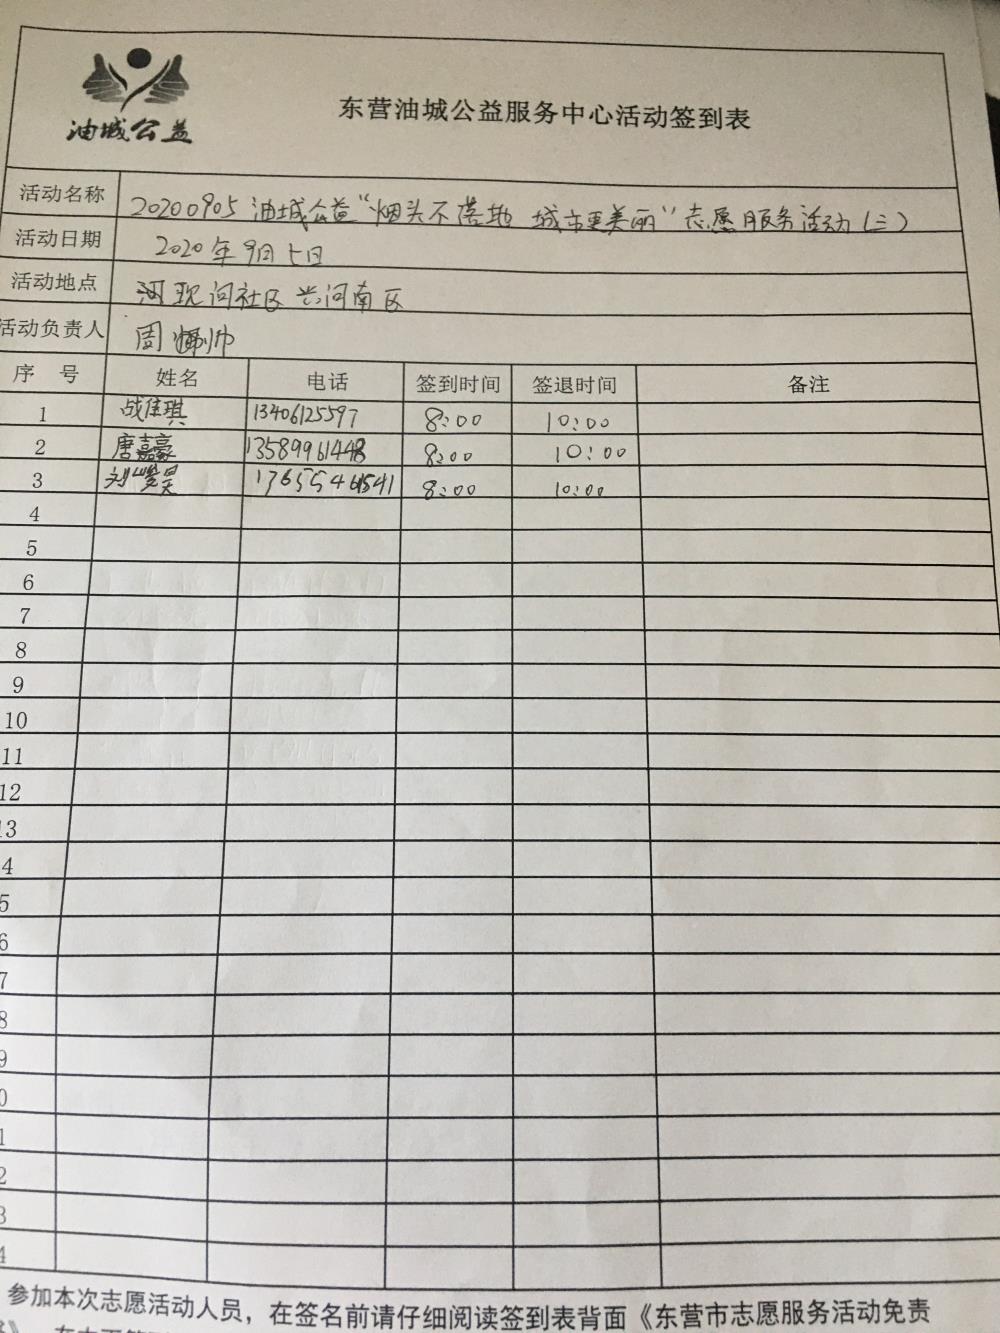 油城公益
东营油城公益服务中心活动签到表
活动名称 20200905 油城公益“烟头不落地 城市更美丽”志愿服务活动(三)
活动日期 2020年9月5日
活动地点 河社区 兴河南区
活动负责人 周帅
序 号 姓名 电话 签到时间 签退时间 备注
1 战佳琪 13406125597 8:00 10:00
2 唐嘉豪 13589961448 8:00 10:00
3 刘昊 8:00 10:00
4
5
6
7
8
9
10
11
12
13
4
5
6
7
8
9
0
1
2
3
4
参加本次志愿活动人员，在签名前请仔细阅读签到表背面《东营市志愿服务活动免责